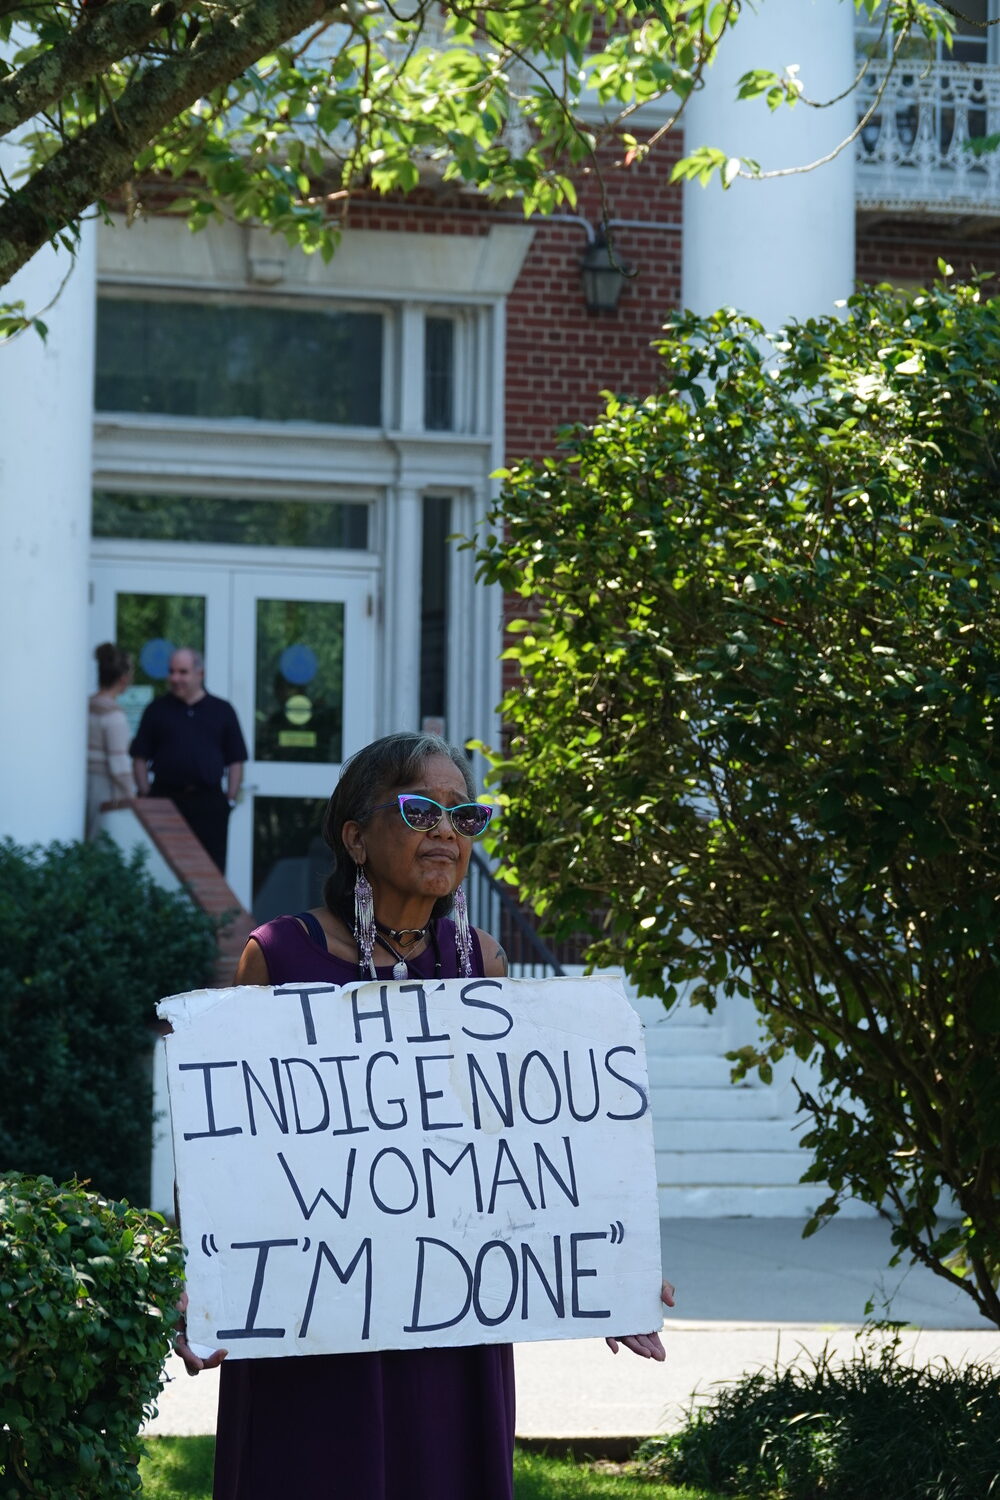 THIS
INDIGENOUS
WOMAN
"I'M DONE"